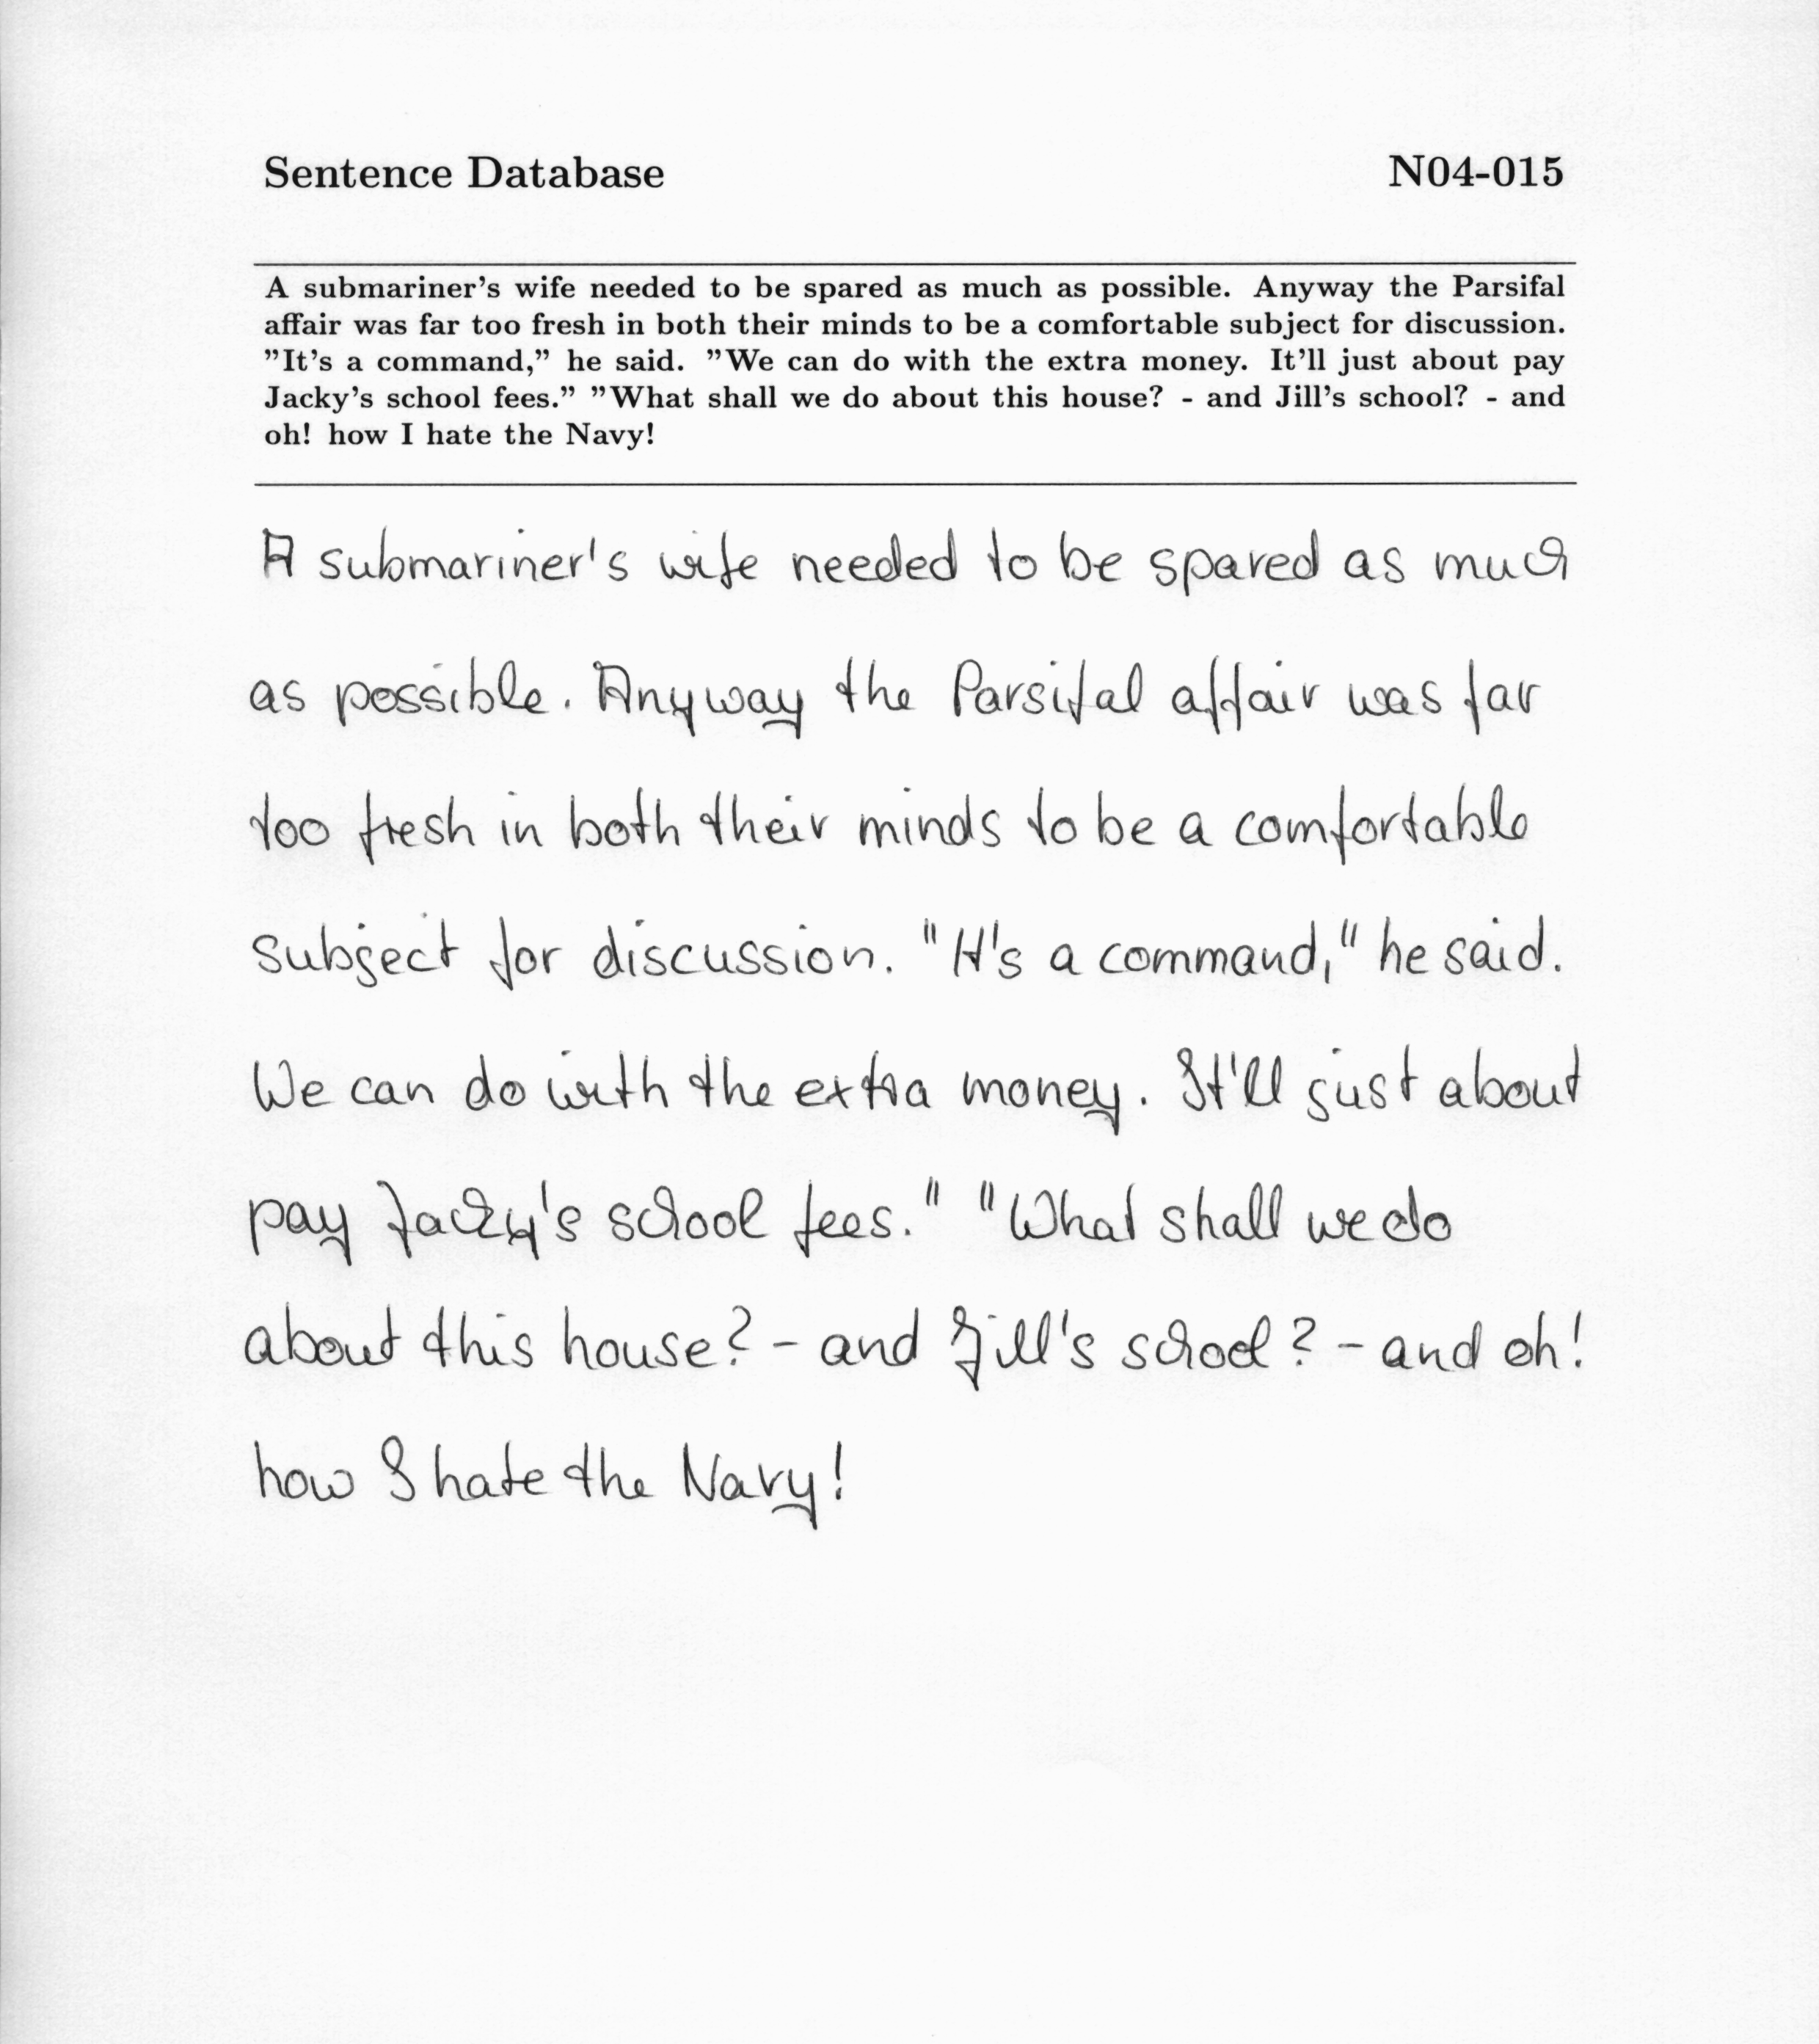 Sentence Database N04-015
A submariner's wife needed to be spared as much as possible. Anyway the Parsifal
affair was far too fresh in both their minds to be a comfortable subject for discussion.
”It's a command,” he said. ”We can do with the extra money. It'll just about pay
Jacky's school fees.” ”What shall we do about this house? - and Jill's school? - and
oh! how I hate the Navy!
A submariner's wife needed to be spared as much
as possible. Anyway the Parsifal affair was far
too fresh in both their minds to be a comfortable
subject for discussion. "It's a command," he said.
We can do with the extra money. It'll just about
pay Jacky's school fees." "What shall we do
about this house? - and Jill's school? - and oh!
how I hate the Navy!